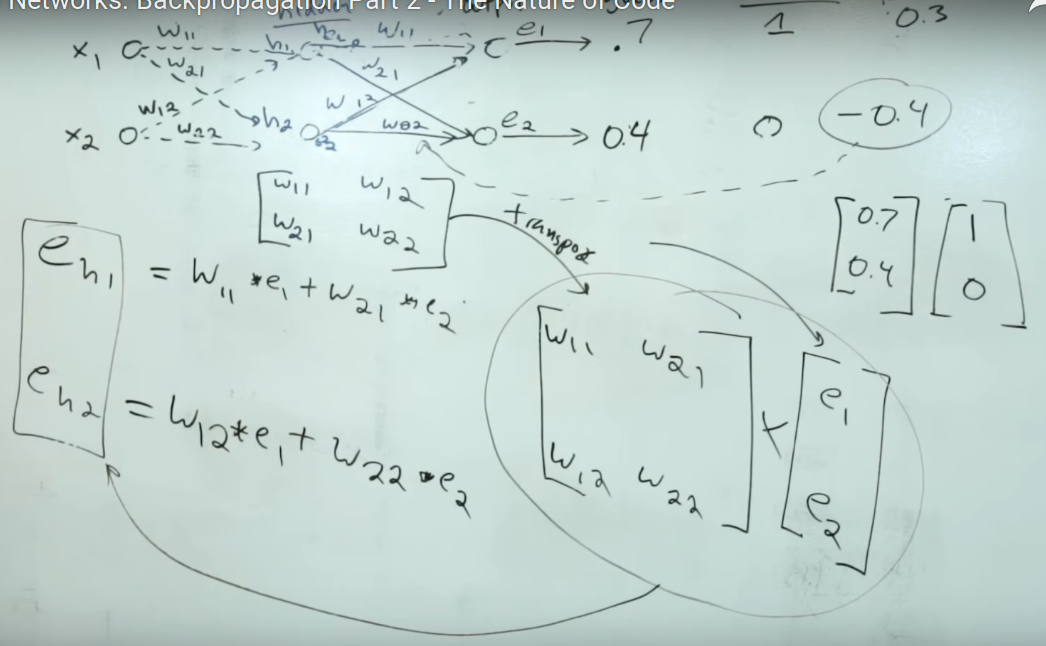 Networks: Backpropagation Part 2 - The Nature of Code
hidden
x1 w11 h1 w11 e1 .7 1 0.3
w21 w21
w12 w12
x2 w22 h2 w22 e2 0.4 0 -0.4
[w11 w12
w21 w22]
transpose
[0.7
0.4]
[1
0]
eh1 = w11 * e1 + w21 * e2
eh2 = w12 * e1 + w22 * e2
[w11 w21
w12 w22]
x
[e1
e2]